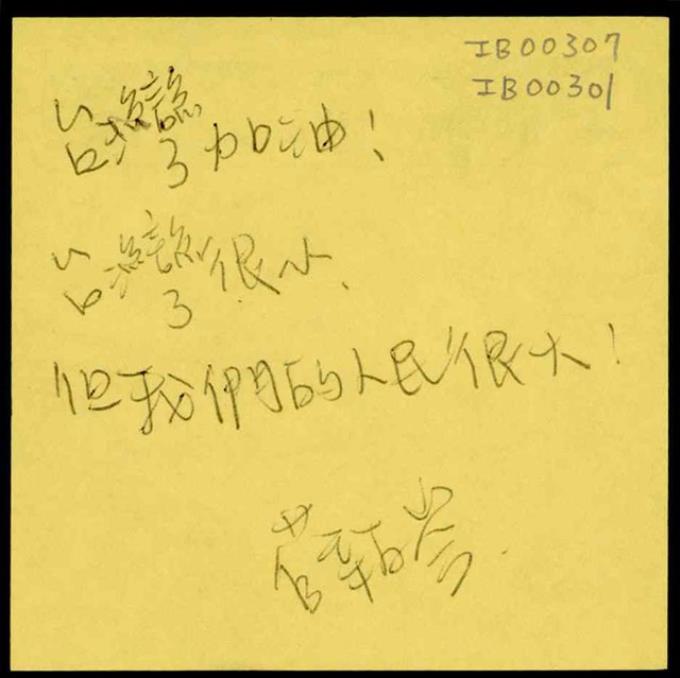 IB00307
IB00301
台灣加油！
台灣很小、
但我們的人民很大！